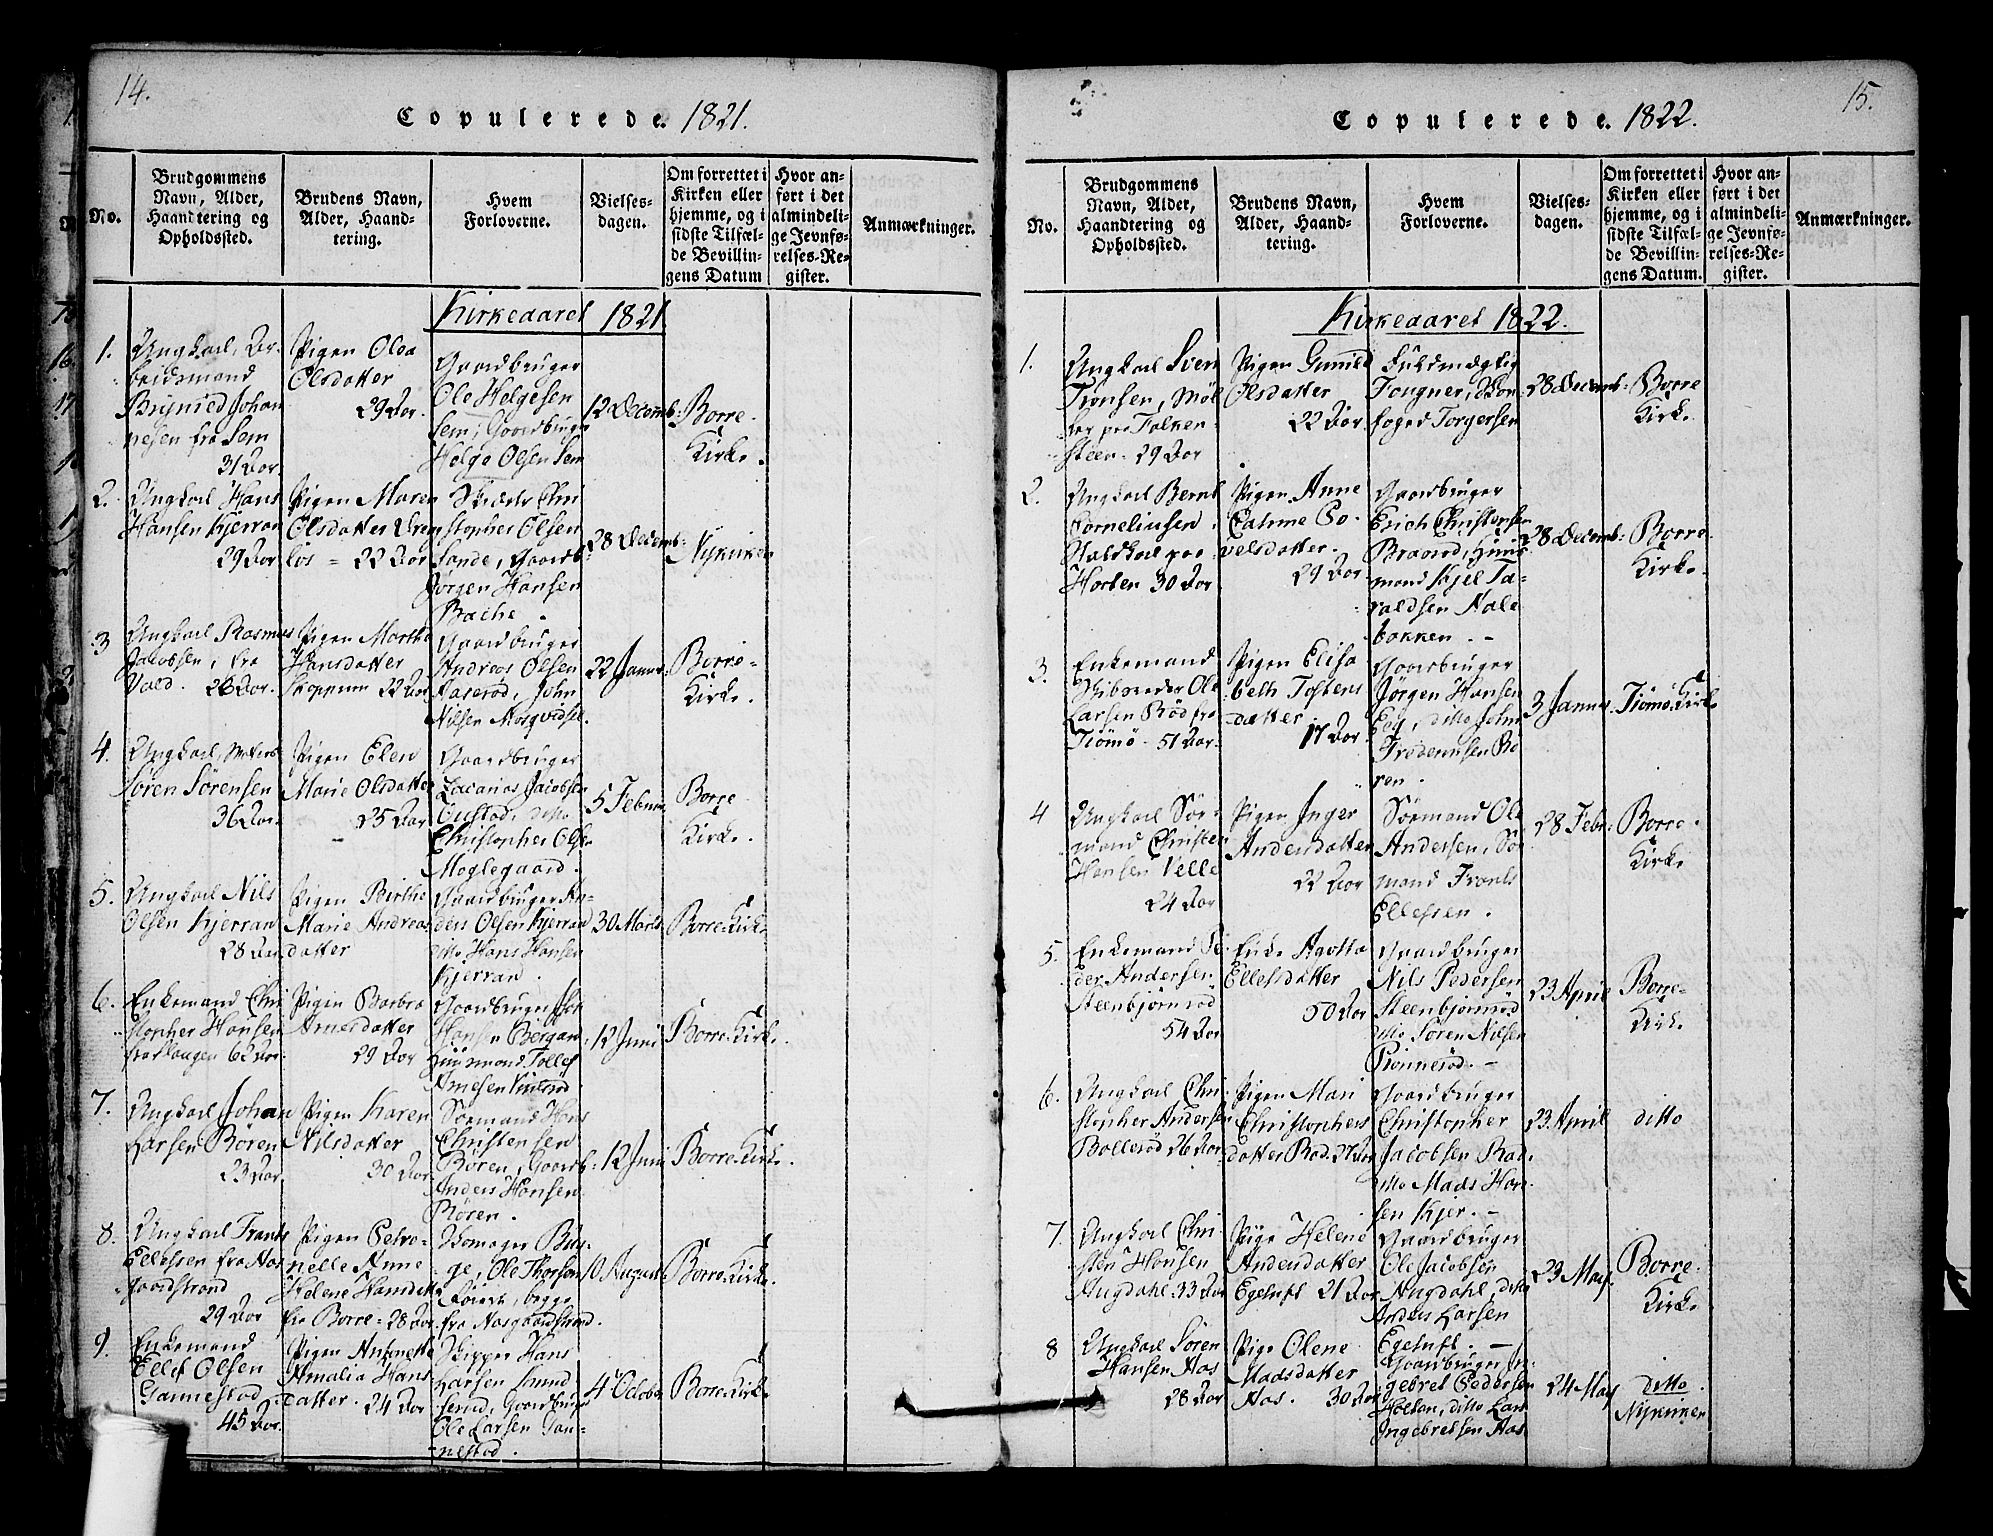 14.
Copulerede. 1821.
No.
Brudgommens
Navn, Alder,
Haandtering og
Opholdssted.
Brudens Navn,
Alder, Haand-
tering.
Hvem
Forloverne.
Vielses-
dagen.
Om forrettet i
Kirken eller
hjemme, og i
sidste Tilfæl-
de Bevillin-
gens Datum
Hvor an-
ført i det
almindeli-
ge Jevnfø-
relses-Re-
gister.
Anmærkninger.
Kirkeaaret 1821
1.
Ungkarl, Ar-
beidsmand
Brynild Johan
nesen fra Sem
31 Aar
Pigen Olea
Olsdatter
29 Aar.
Gaardbruger
Ole Helgesen
Sem, Gaardbruger
Helge Olsen Sem
12 Decemb:
Borre
Kirke.
2.
Ungkarl Hans
Hansen Kjerran
29 Aar
Pigen Maren
Olsdatter
= 22 Aar
Chri
stopher Olsen
Sande, Gaardb:
Jørgen Hansen
Bache.
28 Decemb:
Nykirken
3
Ungkarl Rasmus
Jacobsen, fra
Vald. 28 Aar.
Pigen Marthe
Hansdatter
Skoppum 22 Aar
Gaardbruger
Andreas Olsen
Aaserød, John
Nilsen
22 Januar.
Borre-
Kirke.
4.
Ungkarl,
Søren Sørensen
36 Aar.
Pigen Elen
Marie Olsdatter
25 Aar
Gaardbruger
Zacarias Jacobsen
ditto
Christopher Olse
Moglegaard.
5 Februar
Borre
Kirke.
5.
Ungkarl Nils
Olsen Kjerran
28 Aar.
Pigen Birthe
Marie Andreas
datter
Gaardbruger An-
ders Olsen Kjerran
ditto Hans Hansen
Kjerran.
30 Marts
Borre Kirke
6.
Enkemand Chri
stopher Hansen
62 Aar.
Pigen Barbro
Arnesdatter
29 Aar
Gaardbruger
Hansen
Huusmand Tollef
Arnesen
12 Juni
Borre Kirke.
7.
Ungkarl Johan
Larsen Røren
23 Aar
Pigen Karen
Nilsdatter
30 Aar.
Sørmand Hans
Christensen
Røren, Gaardb:
Anders Hansen
Røren.
12 Juni
Borre Kirke.
8.
Ungkarl Frants
Ellefsen fra Aas
gaardstrand
29 Aar
Pigen Petro-
nelle Anne
Helene Hansdatter
fra Borre - 28 Aar.
ge, Ole Thorsen
begge
fra Aasgaardstrand.
10 August.
Borre Kirke.
9.
Enkemand
Ellef Olsen
Gannestad
45 Aar.
Pigen Antonette
Amalia Hans
datter. 24 Aar
Skipper Hans
Larsen
Gaardbruger
Ole Larsen Gan-
nestad.
4 Octobr
Borre Kirke
15.
Copulerede. 1822.
No.
Brudgommens
Navn, Alder,
Haandtering og
Opholdssted.
Brudens Navn,
Alder, Haand-
tering.
Hvem
Forloverne.
Vielses-
dagen.
Om forrettet i
Kirken eller
hjemme, og i
sidste Tilfæl-
de Bevillin-
gens Datum.
Hvor an-
ført i det
almindeli-
ge Jevnfø-
relses-Re-
gister.
Anmærkninger.
Kirkeaaret 1822.
1.
Ungkarl Sven
Tronsen, Møl
ler paa Falken-
steen. 29 Aar
Pigen Gunild
Olsdatter
22 Aar
Fuldmægtig
Fougner,
foged Torgersen
28 Decemb:
Borre
Kirke
2.
Ungkarl Bernt
Corneliusen
paa
Horten 30 Aar
Pigen Anne
Cathrine Po-
velsdatter.
29 Aar
Gaardbruger
Erich Christensen
Braarud, Huus
mand Kjel Ta-
raldsen Nale
bakken. -
28 Decemb:
Borre
Kirke
3.
Enkemand
Ole
Larsen Rød fra
Tiømø - 51 Aar.
Pigen Elisa
beth Tostens
datter.
17 Aar
Gaardbruger
Jørgen Hansen
ditto John
3 Januar.
Tiømø Kirke
4
Ungkarl Sør-
mand Christen
Hansen Velle
24 Aar
Pigen Inger
Andersdatter
22 Aar
Sørmand Ole
Andersen, Sør
mand Frants
Ellefsen.
28 Febr:
Borre
Kirke
5.
Enkemand Pe
der Andersen
Steenbjørnrød
54 Aar
Enke Agathe
Ellefsdatter
50 Aar
Gaardbruger
Nils Pedersen
Steenbjørnrød
ditto Søren Nilsen
Rønnerød. -
23 April
Borre
Kirke
6.
Ungkarl Chri
stopher Andersen
Bollerød 26 Aar
Pigen Mari
Christophers
datter Rad. 27 Aar
Gaardbruger
Christopher
Jacobsen Rad.
ditto Mads Han
sen Kjer. -
23 April
ditto
7.
Ungkarl Chri
sten Hansen
Augdahl 33 Aar
Pige Helene
Andersdatter
Egetuft 21 Aar
Gaardbruger
Ole Jacobsen
Augdahl, ditto
Anders Larsen
Egetuft. -
23 May.
Borre
Kirke
8
Ungkarl Søren
Hansen Aas
28 Aar
Pige Olene
Madsdatter
Aas. 30 Aar
Gaardbruger In-
gebret Pedersen
Holtan, ditto Lars
Ingebretsen Aas
24 May
ditto
Nykirken